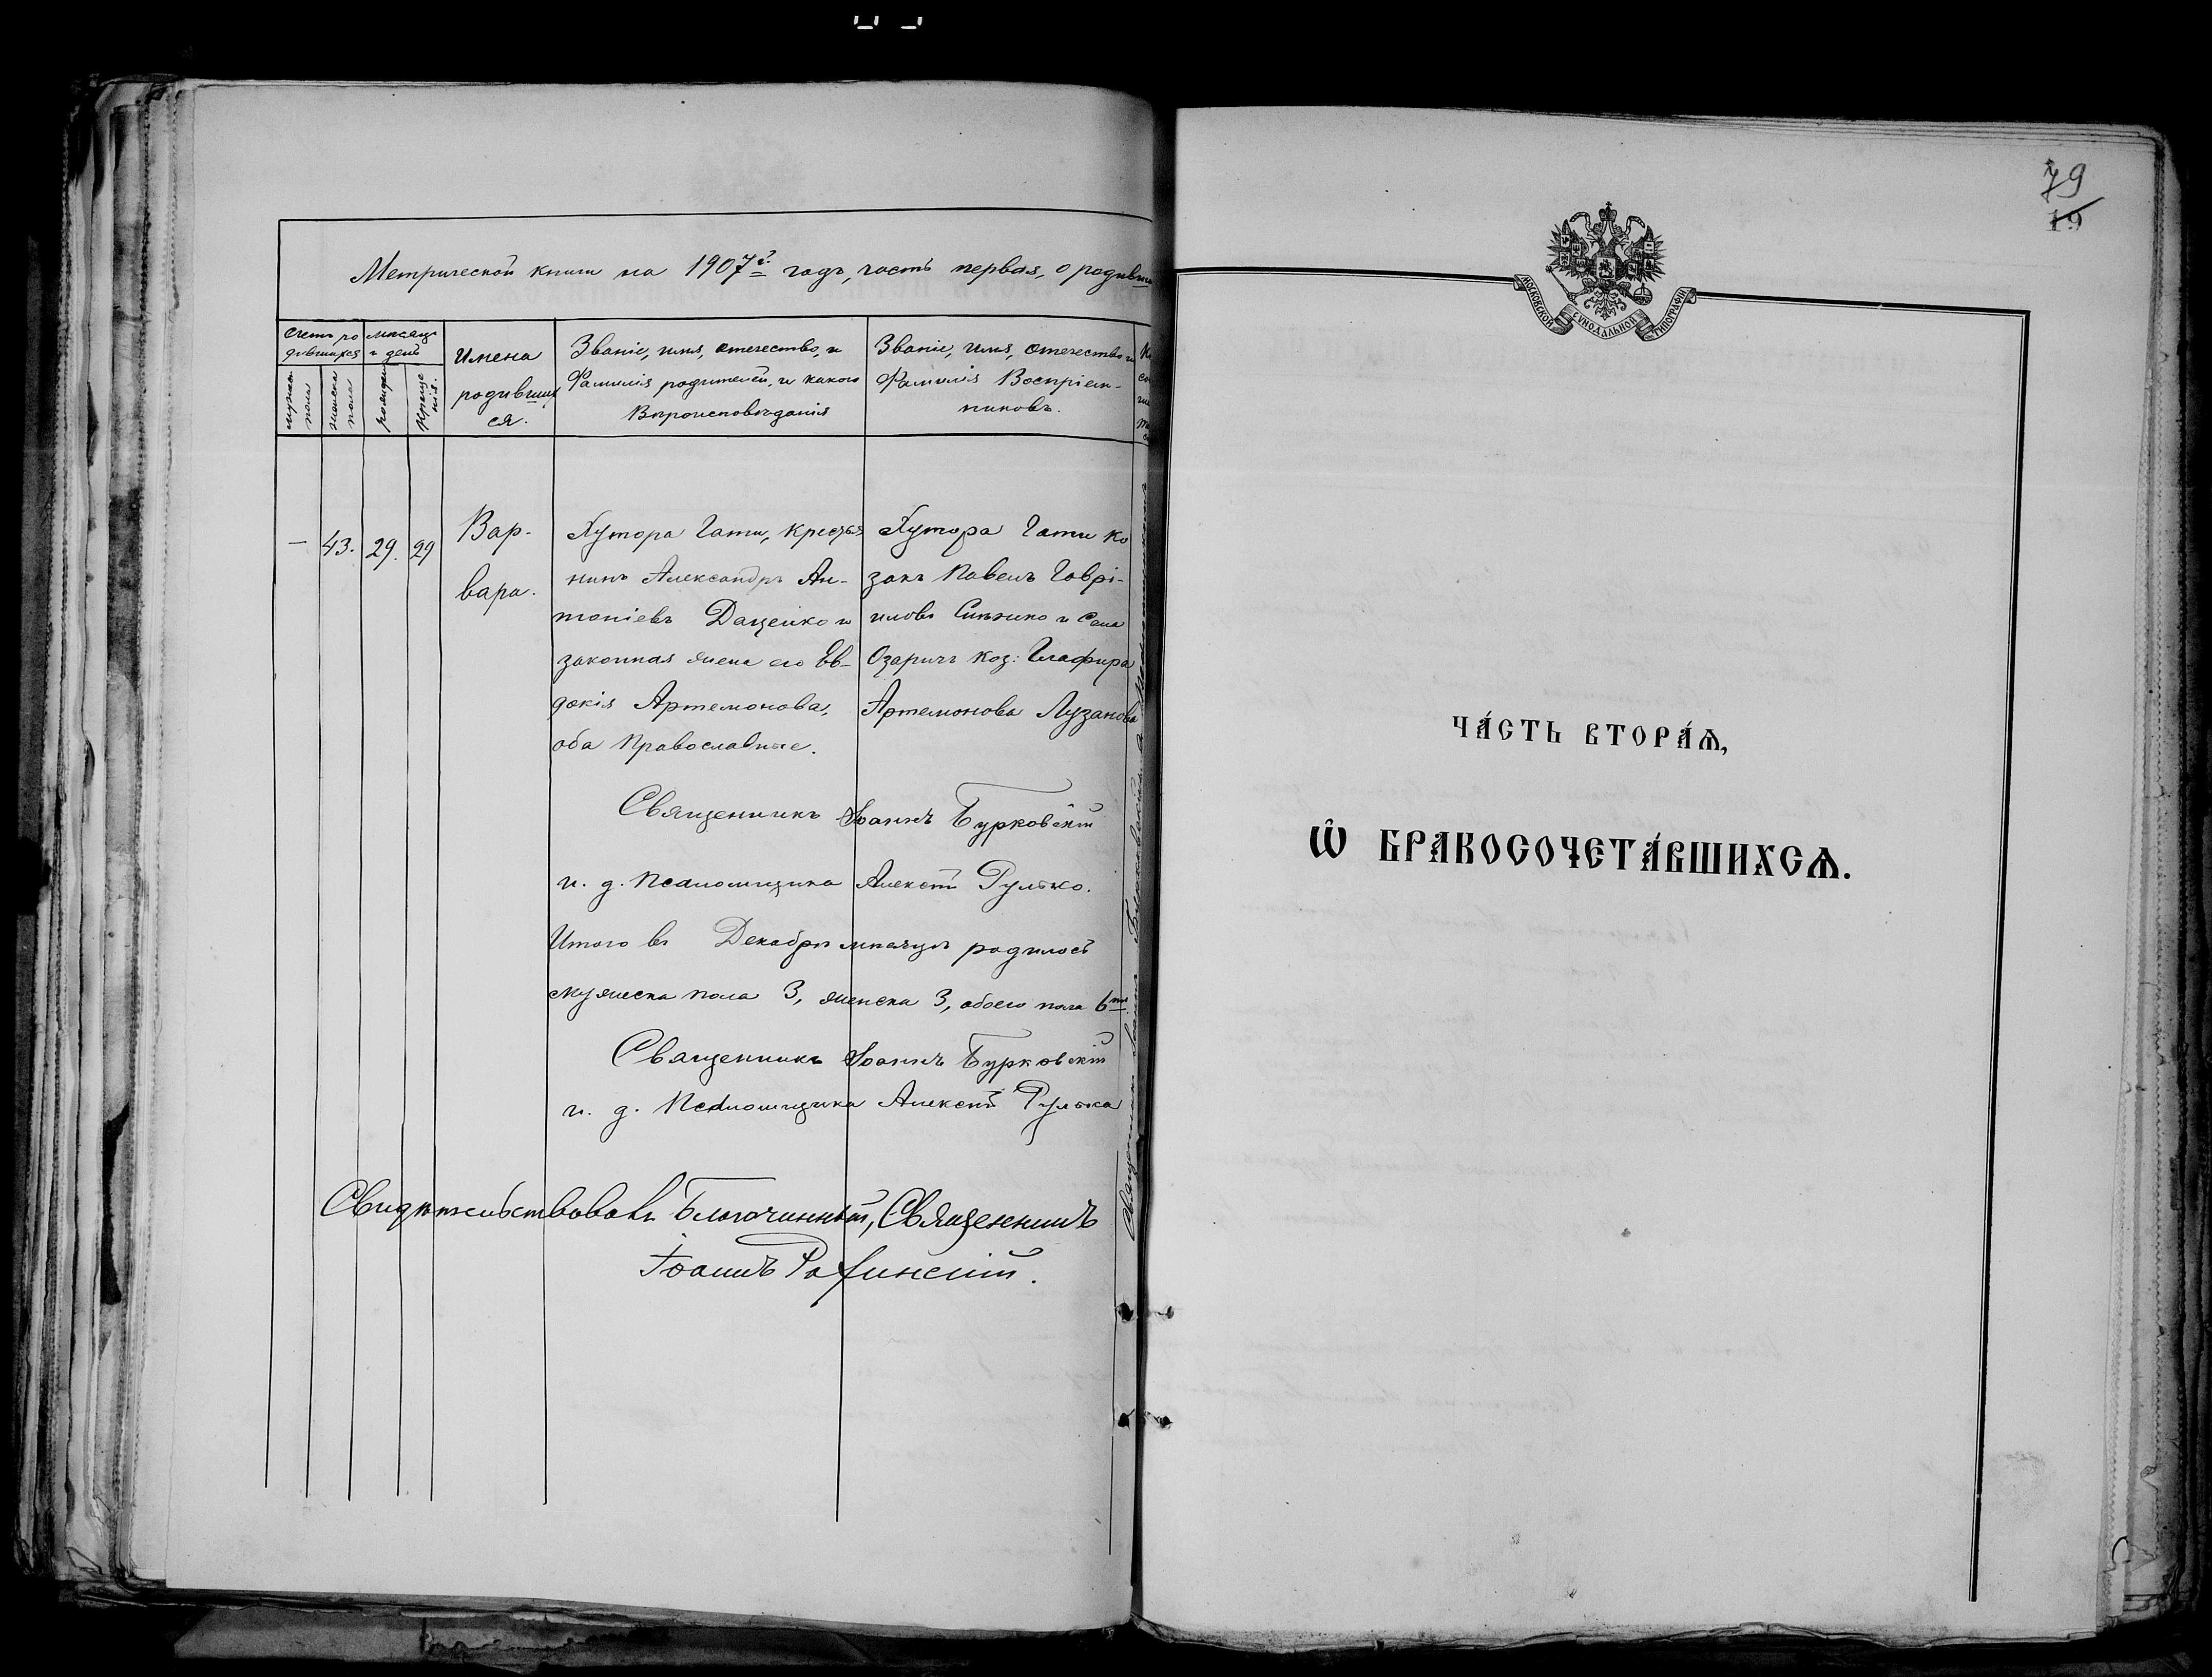 Метрической книги на 1907й годъ, часть первая, о родивш
Счетъ ро
дившихся
мужеска
пола
женска
пола
Мѣсяцъ
и день
рожден
креще
нія.
Имена
родивших
ся.
Званіе, имя, отечество, и
Фамилія родителей, и какого
Вѣроисповѣданія
Званіе, имя, отечество и
Фамилія Воспріем-
никовъ.
— 43. 29. 29
Вар-
вара.
Хутора Гати, крестья
нинъ Александръ Ан-
тоніевъ Даценко и
законная жена его Ев-
докія Артемонова,
оба Православные.
Хутора Гати ко
закъ Павелъ Гаврі-
иловъ и Села
Озаричъ коз: Глафира
Артемонова Лузанова
Священникъ Іоаннъ Бурковскій
и. д. Псаломщика Алексѣй Рулько.
Итого въ Декабрѣ мѣсяцѣ родилось
мужеска пола 3, женска 3, обоего пола 6ть.
Священникъ Іоаннъ Бурковскій
и. д. Псаломщика Алексѣй Рулько
Свидѣтельствовалъ Благочинный, Священникъ
Іоаннъ
Священникъ Іоаннъ
79
19
МОСКОВСКОЙ СѴНОДАЛЬНОЙ ТИПОГРАФІИ
ЧА́СТЬ ВТОРА́Ѧ,
Ѽ БРАКОСОЧЕТА́ВШИХСѦ.